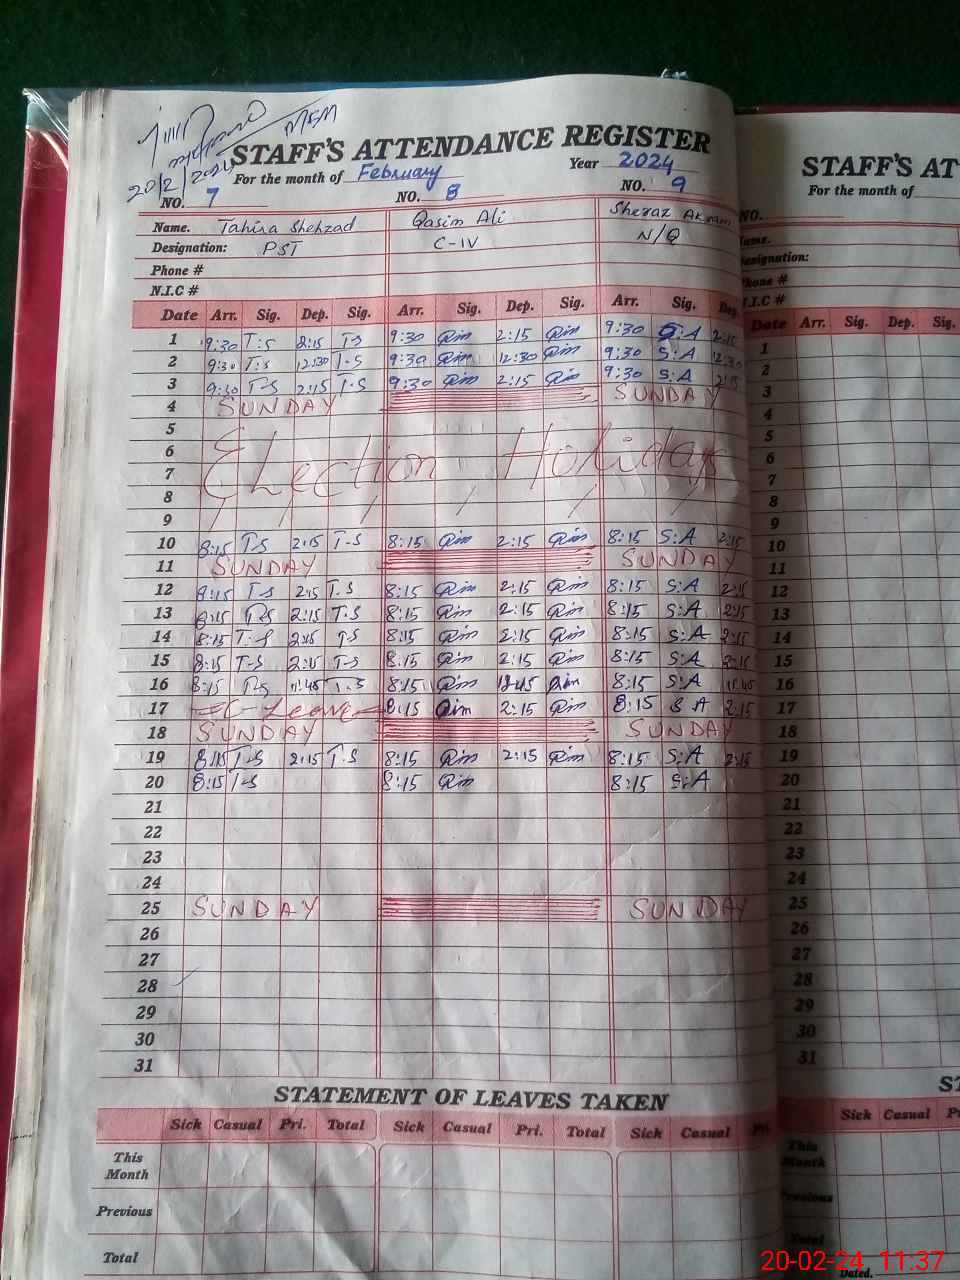 MEM
20/2/2024
STAFF'S ATTENDANCE REGISTER
For the month of February Year 2024
NO. 7 NO. 8 NO. 9
Name. Tahira Shehzad Qasim Ali Sheraz Akram
Designation: PST C-IV N/Q
Phone #
N.I.C #
Date Arr. Sig. Dep. Sig. Arr. Sig. Dep. Sig. Arr. Sig. Dep.
1 9:30 T:S 2:15 T-S 9:30 Qim 2:15 Qim 9:30 S:A 2:15
2 9:30 T:S 12:30 T-S 9:30 Qim 12:30 Qim 9:30 S:A 12:30
3 9:30 T-S 2:15 T-S 9:30 Qim 2:15 Qim 9:30 S:A 2:15
4 SUNDAY SUNDAY
5
6
7 Election Holidays
8
9
10 8:15 T-S 2:15 T-S 8:15 Qim 2:15 Qim 8:15 S:A 2:15
11 SUNDAY SUNDAY
12 8:15 T-S 2:15 T.S 8:15 Qim 2:15 Qim 8:15 S:A 2:15
13 8:15 T-S 2:15 T.S 8:15 Qim 2:15 Qim 8:15 S:A 2:15
14 8:15 T-S 2:15 T-S 8:15 Qim 2:15 Qim 8:15 S:A 2:15
15 8:15 T-S 2:15 T-S 8:15 Qim 2:15 Qim 8:15 S:A 2:15
16 8:15 T-S 11:45 T.S 8:15 Qim 11:45 Qim 8:15 S:A 11:45
17 C-Leave 8:15 Qim 2:15 Qim 8:15 S A 2:15
18 SUNDAY SUNDAY
19 8:15 T-S 2:15 T.S 8:15 Qim 2:15 Qim 8:15 S:A 2:15
20 8:15 T-S 8:15 Qim 8:15 S:A
21
22
23
24
25 SUNDAY SUNDAY
26
27
28
29
30
31
STATEMENT OF LEAVES TAKEN
Sick Casual Pri. Total Sick Casual Pri. Total Sick Casual Pri.
This
Month
Previous
Total
STAFF'S AT
For the month of
NO.
Name.
Designation:
Phone #
N.I.C #
Date Arr. Sig. Dep. Sig.
1
2
3
4
5
6
7
8
9
10
11
12
13
14
15
16
17
18
19
20
21
22
23
24
25
26
27
28
29
30
31
ST
Sick Casual
This
Month
Previous
Total
Dated.
20-02-24 11:37